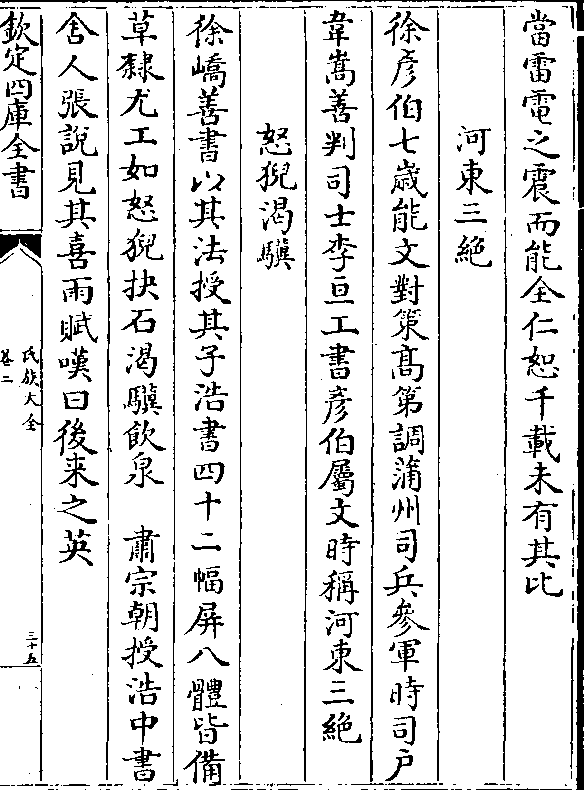 當雷電之震而能全仁恕千載未有其比
河東三絶
徐彦伯七歳能文對策髙第調蒲州司兵參軍時司户
韋嵩善判司士李亘工書彦伯屬文時稱河東三絶
怒猊渇驥
徐嶠善書以其法授其子浩書四十二幅屏八體皆備
草隸尤工如怒猊抉石渇驥飲泉　肅宗朝授浩中書
舍人張說見其喜雨賦嘆曰後来之英
欽定四庫全書
氏族大全
卷二
三十五